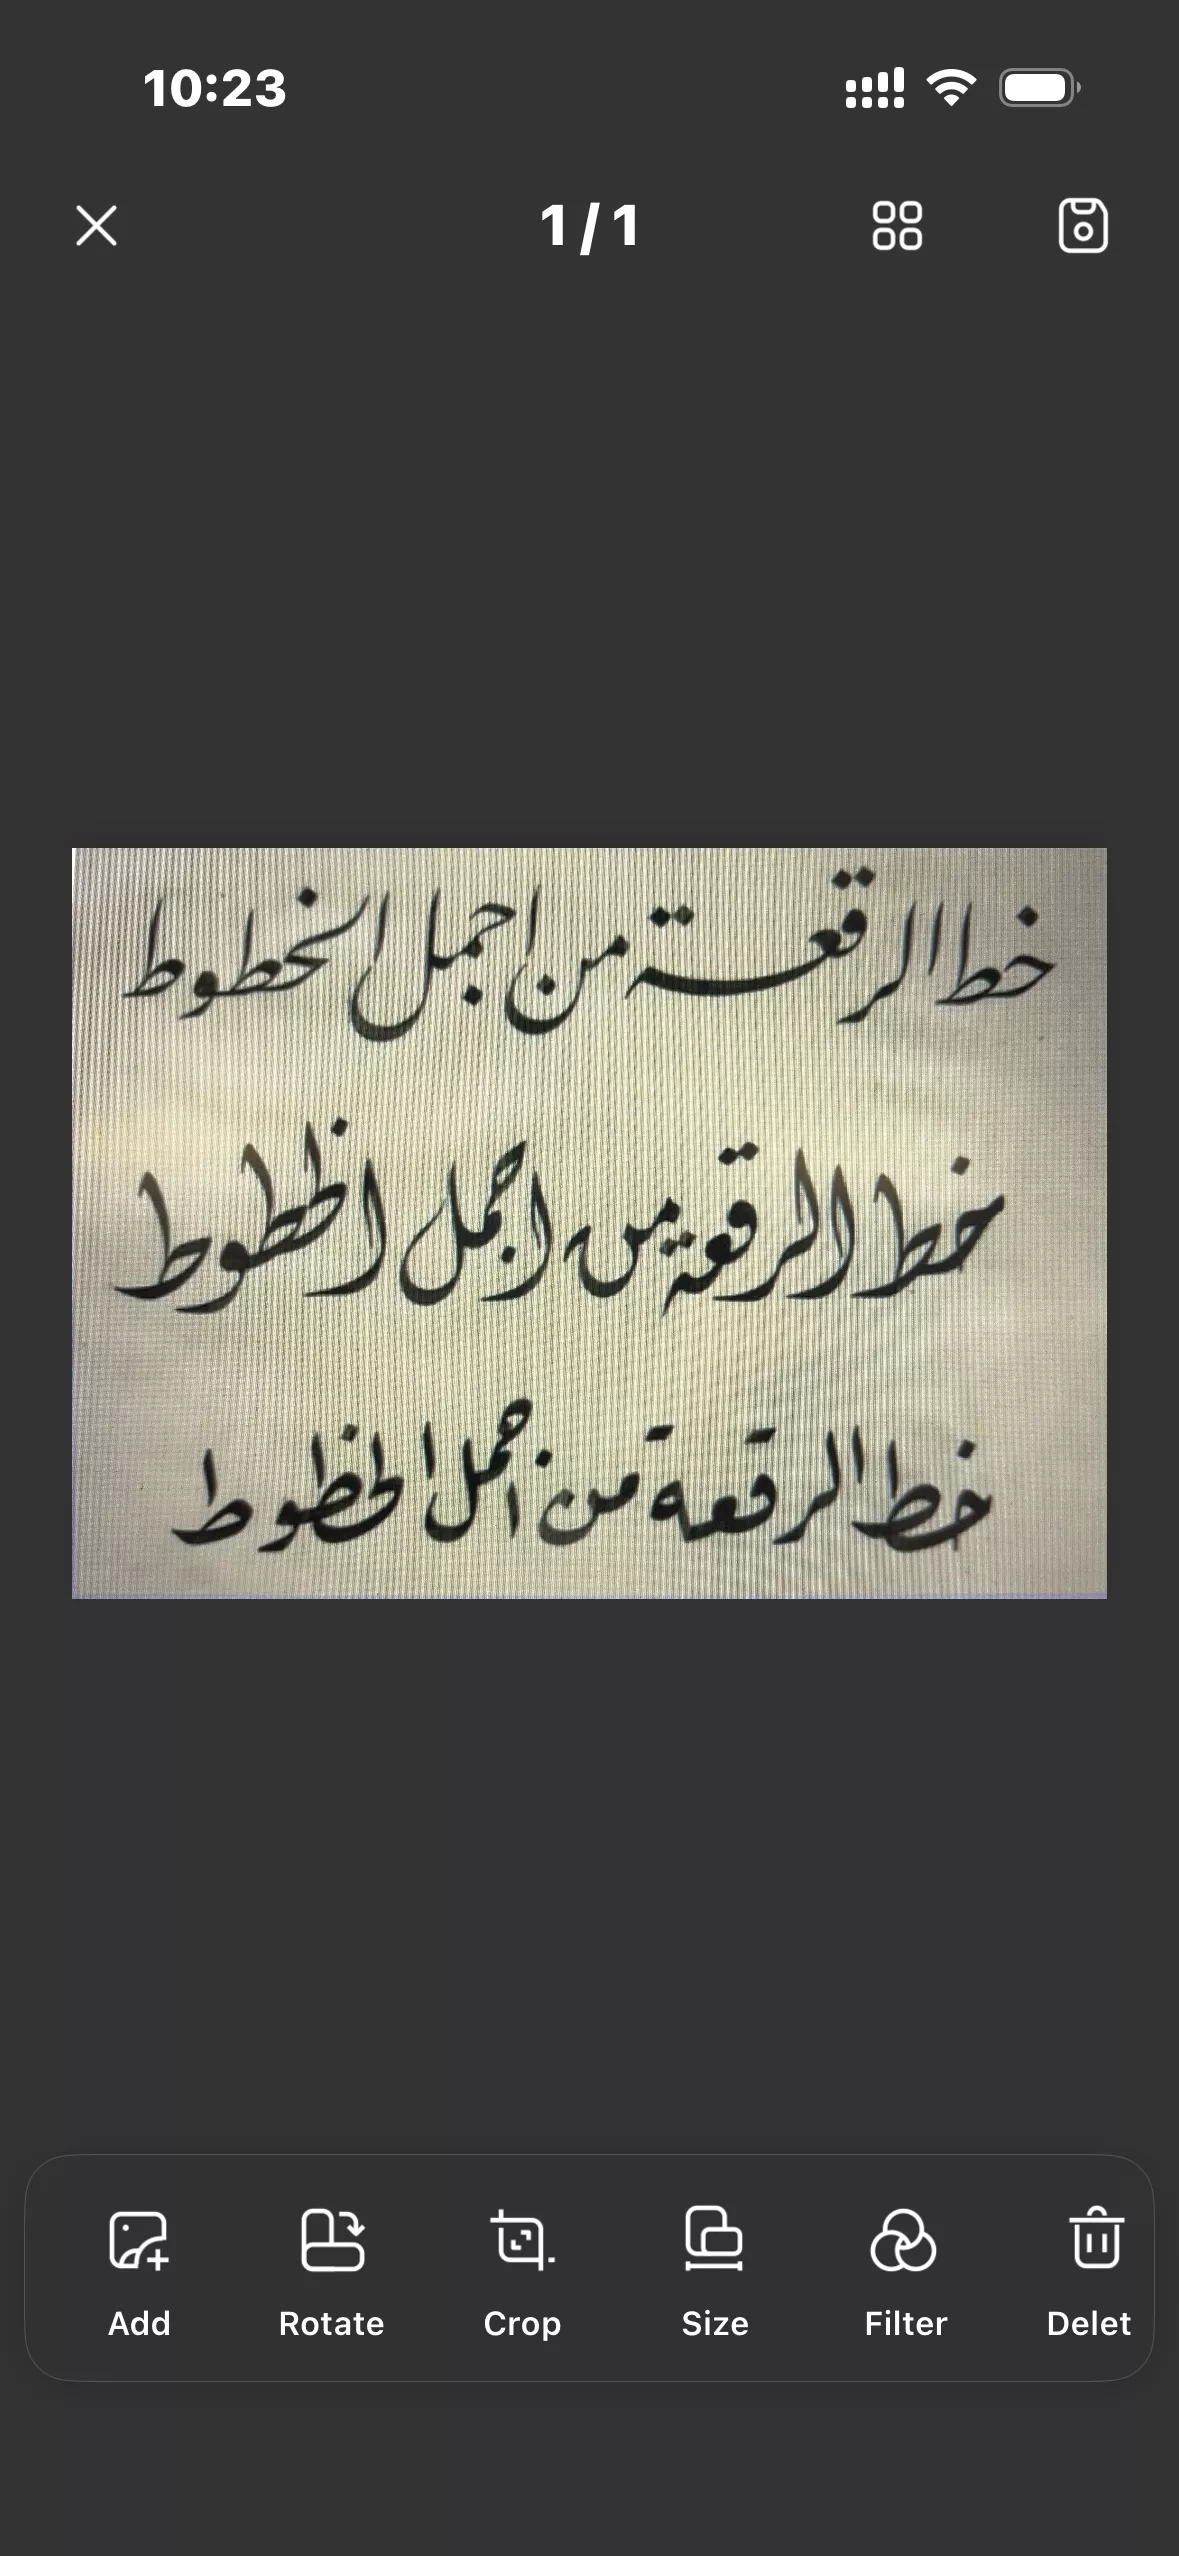 10:23
1 / 1
خط الرقعة من اجمل الخطوط
خط الرقعة من اجمل الخطوط
خط الرقعة من اجمل الخطوط
Add Rotate Crop Size Filter Delet